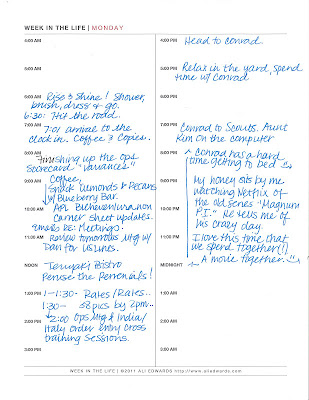 WEEK IN THE LIFE | MONDAY
4:00 AM
5:00 AM
6:00 AM Rise & Shine! Shower,
brush, dress & go.
6:30: Hit the road.
7:00 AM 7:01 arrival to the
clock in. Coffee & Copies.
8:00 AM Finishing up the ops
Scorecard "Variances."
9:00 AM Coffee,
Snack Almonds & Pecans
w/ Blueberry Bar.
10:00 AM
Corner sheet updates.
emails re: Meetings.
11:00 AM Review tomorrows Mtg w/
Dan for US Invs.
NOON Teriyaki Bistro
Peruse the Perennials!
1:00 PM 1-1:30- Rates/Rates..
1:30- SS pics by 2pm..
2:00 PM 2:00 Ops Mtg & India/
Italy order Entry cross
training Sessions.
3:00 PM
4:00 PM Head to Conrad
5:00 PM Relax in the yard, spend
time w/ Conrad
6:00 PM
7:00 PM Conrad to Scouts. Aunt
Kim on the computer
8:00 PM Conrad has a hard
time getting to bed
9:00 PM My honey sits by me
watching Netflix of
the old series "Magnum
10:00 PM P.I." He tells me of
his crazy day.
11:00 PM I love this time that
we spend together!!
MIDNIGHT A movie together.
1:00 AM
2:00 AM
3:00 AM
WEEK IN THE LIFE | ©2011 ALI EDWARDS http://www.aliedwards.com